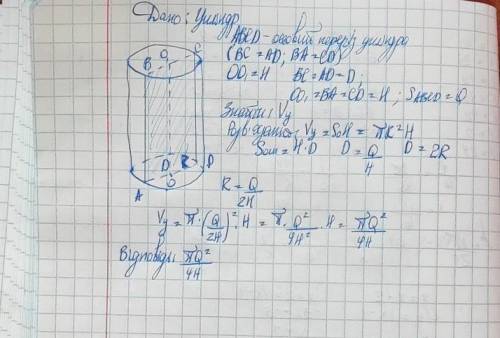 Дано: Циліндр
ABCD - осьовий переріз циліндра
(BC = AD; BA = CD)
OO₁ = H BC = AD = D;
OO₁ = BA = CD = H; S_ABCD = Q
Знайти: Vц
Розв'язання: Vц = S₀H = πR²H
= H·D D = Q/H D = 2R
R = Q/2H
Vц = π·(Q/2H)²·H = π·Q²/4H²·H = πQ²/4H
Відповідь: πQ²/4H
B O₁ C
D R D
A O